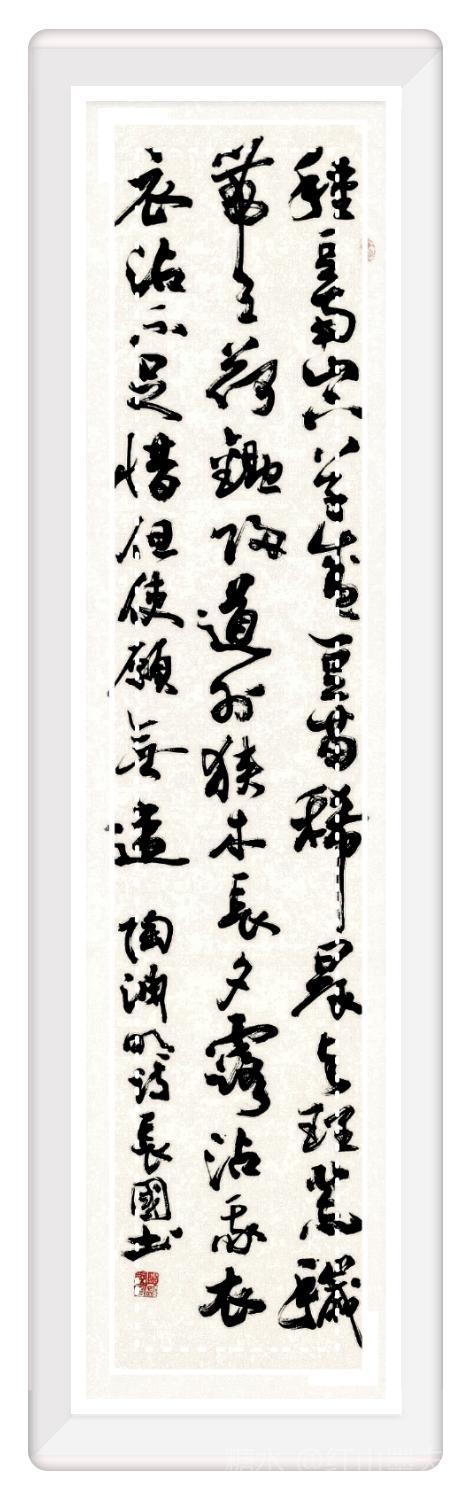 種豆南山下草盛豆苗稀晨興理荒穢
帶月荷鋤歸道狹木長夕露沾我衣
衣沾不足惜但使願無違 陶淵明詩長國書